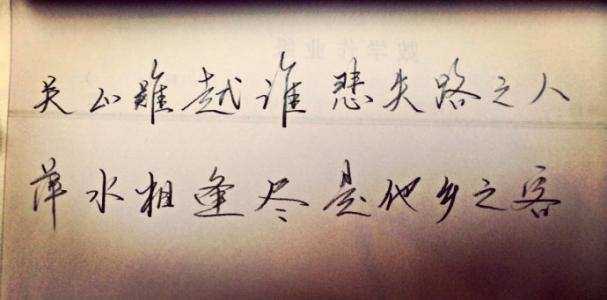 关山難越谁悲失路之人
萍水相逢尽是他乡之客